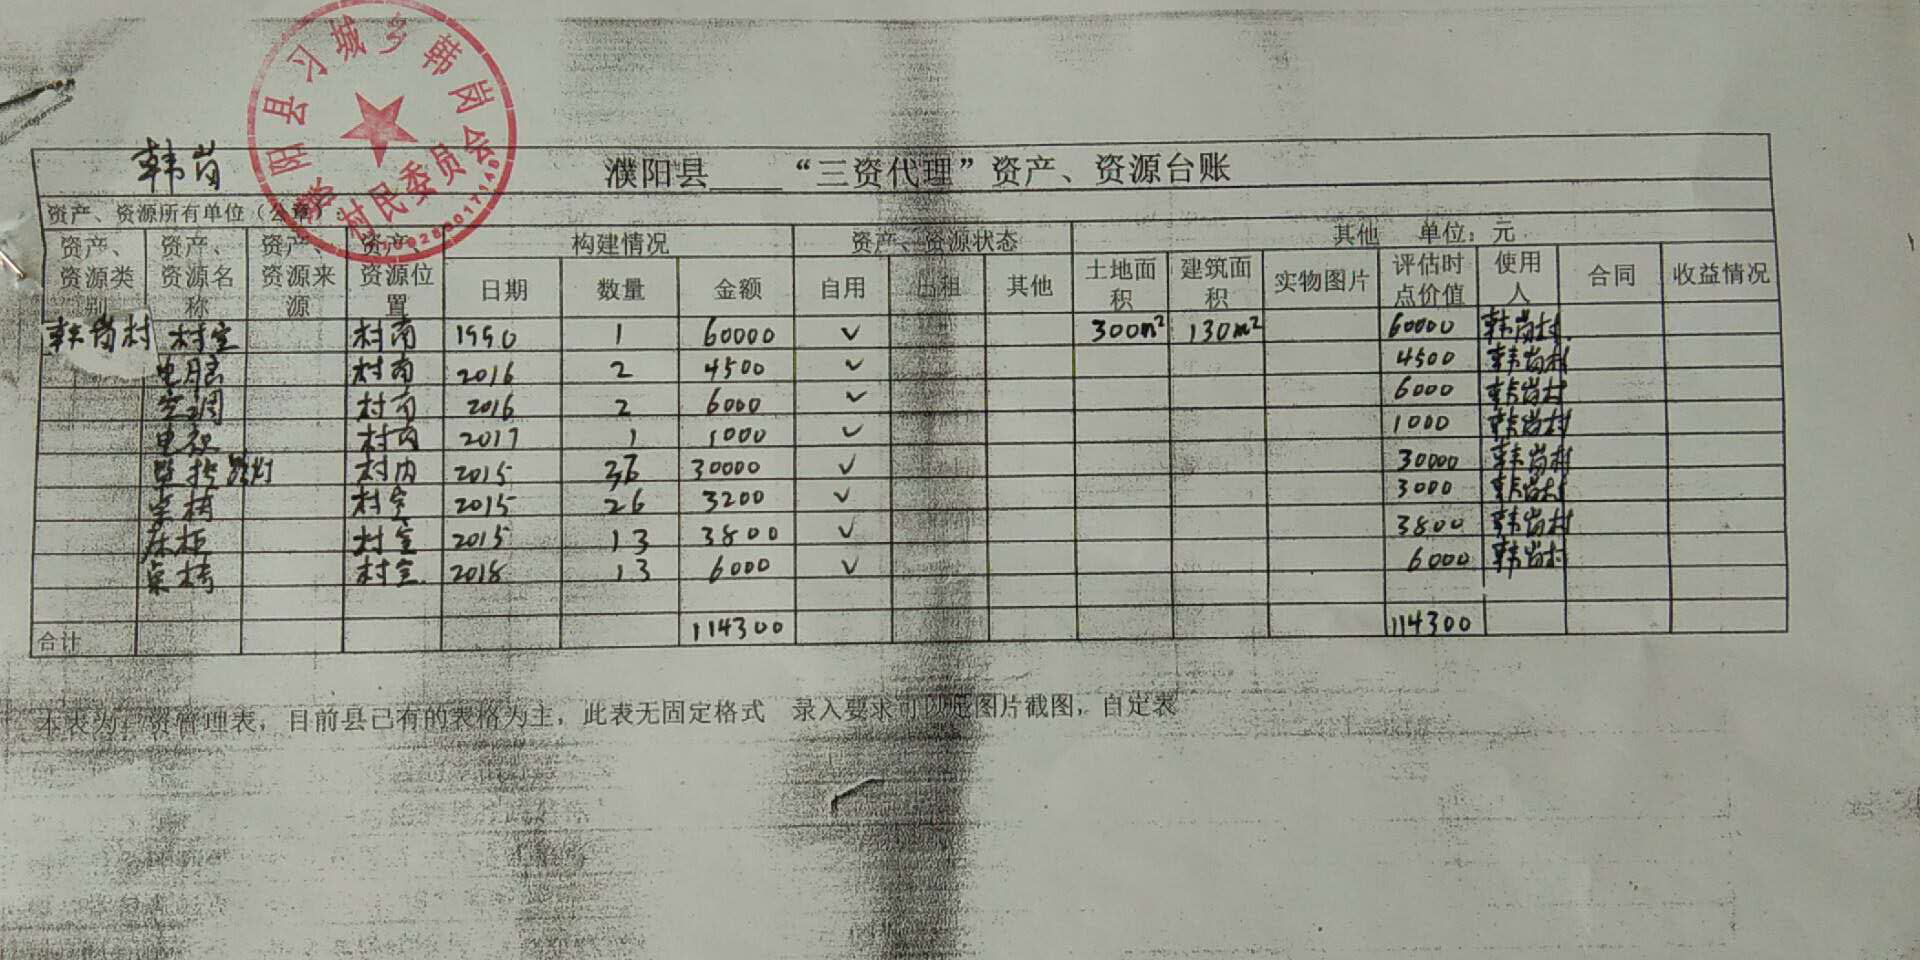 濮阳县习城乡韩岗
村民委员会
韩岗
濮阳县____“三资代理”资产、资源台账
资产、资源所有单位（公章）：
资产、资源类别 资产、资源名称 资产、资源来源 资产、资源位置 构建情况 资产、资源状态 其他 单位：元
日期 数量 金额 自用 出租 其他 土地面积 建筑面积 实物图片 评估时点价值 使用人 合同 收益情况
韩岗村 村室 村南 1990 1 60000 ✓ 300m² 130m² 60000 韩岗村
电脑 村南 2016 2 4500 ✓ 4500 韩岗村
空调 村南 2016 2 6000 ✓ 6000 韩岗村
电视 村内 2017 1 1000 ✓ 1000 韩岗村
监控路灯 村内 2015 36 30000 ✓ 30000 韩岗村
桌椅 村室 2015 26 3200 ✓ 3000 韩岗村
床柜 村室 2015 13 3800 ✓ 3800 韩岗村
桌椅 村室 2018 13 6000 ✓ 6000 韩岗村
合计 114300 114300
本表为三资管理表，目前县已有的表格为主，此表无固定格式 录入要求可以是图片截图，自定表